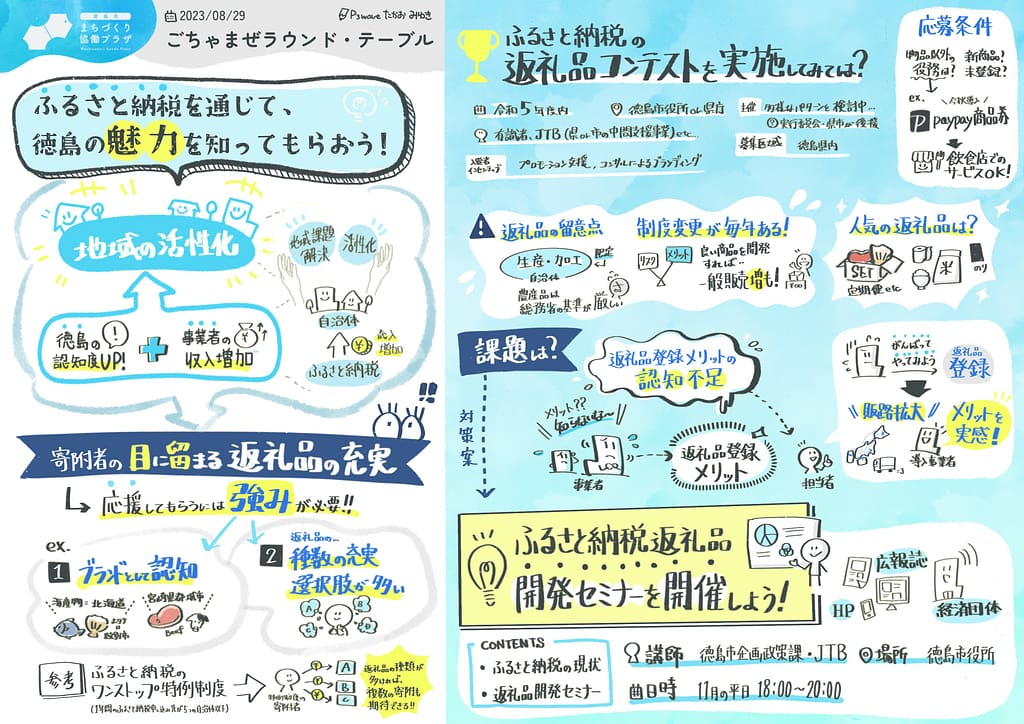 徳島市
まちづくり
協働プラザ
2023/08/29
P3wave たかお みゆき
ごちゃまぜラウンド・テーブル
ふるさと納税を通じて、
徳島の魅力を知ってもらおう!
地域の活性化
徳島の
認知度UP!
事業者の
収入増加
地域課題
解決
活性化
自治体
収入
増加
ふるさと納税
寄附者の目に留まる返礼品の充実
応援してもらうには強みが必要!!
ex.
1 ブランドとして認知
海産物=北海道
宮崎県都城市
Beef
2 返礼品の…
種数の充実
選択肢が多い
A
B
C
D
参考
ふるさと納税の
ワンストップ特例制度
寄附者
A
B
C
返礼品の種類が
多ければ、
複数の寄附も
期待できる!!
ふるさと納税の
返礼品コンテストを実施してみては?
令和5年度内
徳島市役所or県庁
主催 多様なパターンを検討中…
実行委員会・県市が後援
有識者、JTB(県or市の中間支援事業)etc..
募集区域 徳島県内
入選者
インセンティブ
プロモーション支援、コンサルによるブランディング
応募条件
物品以外の
役務は?
新商品?
未登録?
ex.
paypay商品券
飲食店での
サービスOK!
返礼品の留意点
生産・加工
自治体
農産品は
総務省の基準が厳しい
制度変更が毎年ある!
リスク
メリット
良い商品を開発
すれば…
一般販売増も!
人気の返礼品は?
SET
定期便 etc
のり
課題は?
対策案
返礼品登録メリットの
認知不足
メリット??
知らないな〜
事業者
返礼品登録
メリット
担当者
がんばって
やってみよう
返礼品
登録
販路拡大
メリットを
実感!
導入事業者
ふるさと納税返礼品
開発セミナーを開催しよう!
広報誌
HP
経済団体
CONTENTS
・ふるさと納税の現状
・返礼品開発セミナー
講師 徳島市企画政策課・JTB
場所 徳島市役所
日時 11月の平日 18:00〜20:00